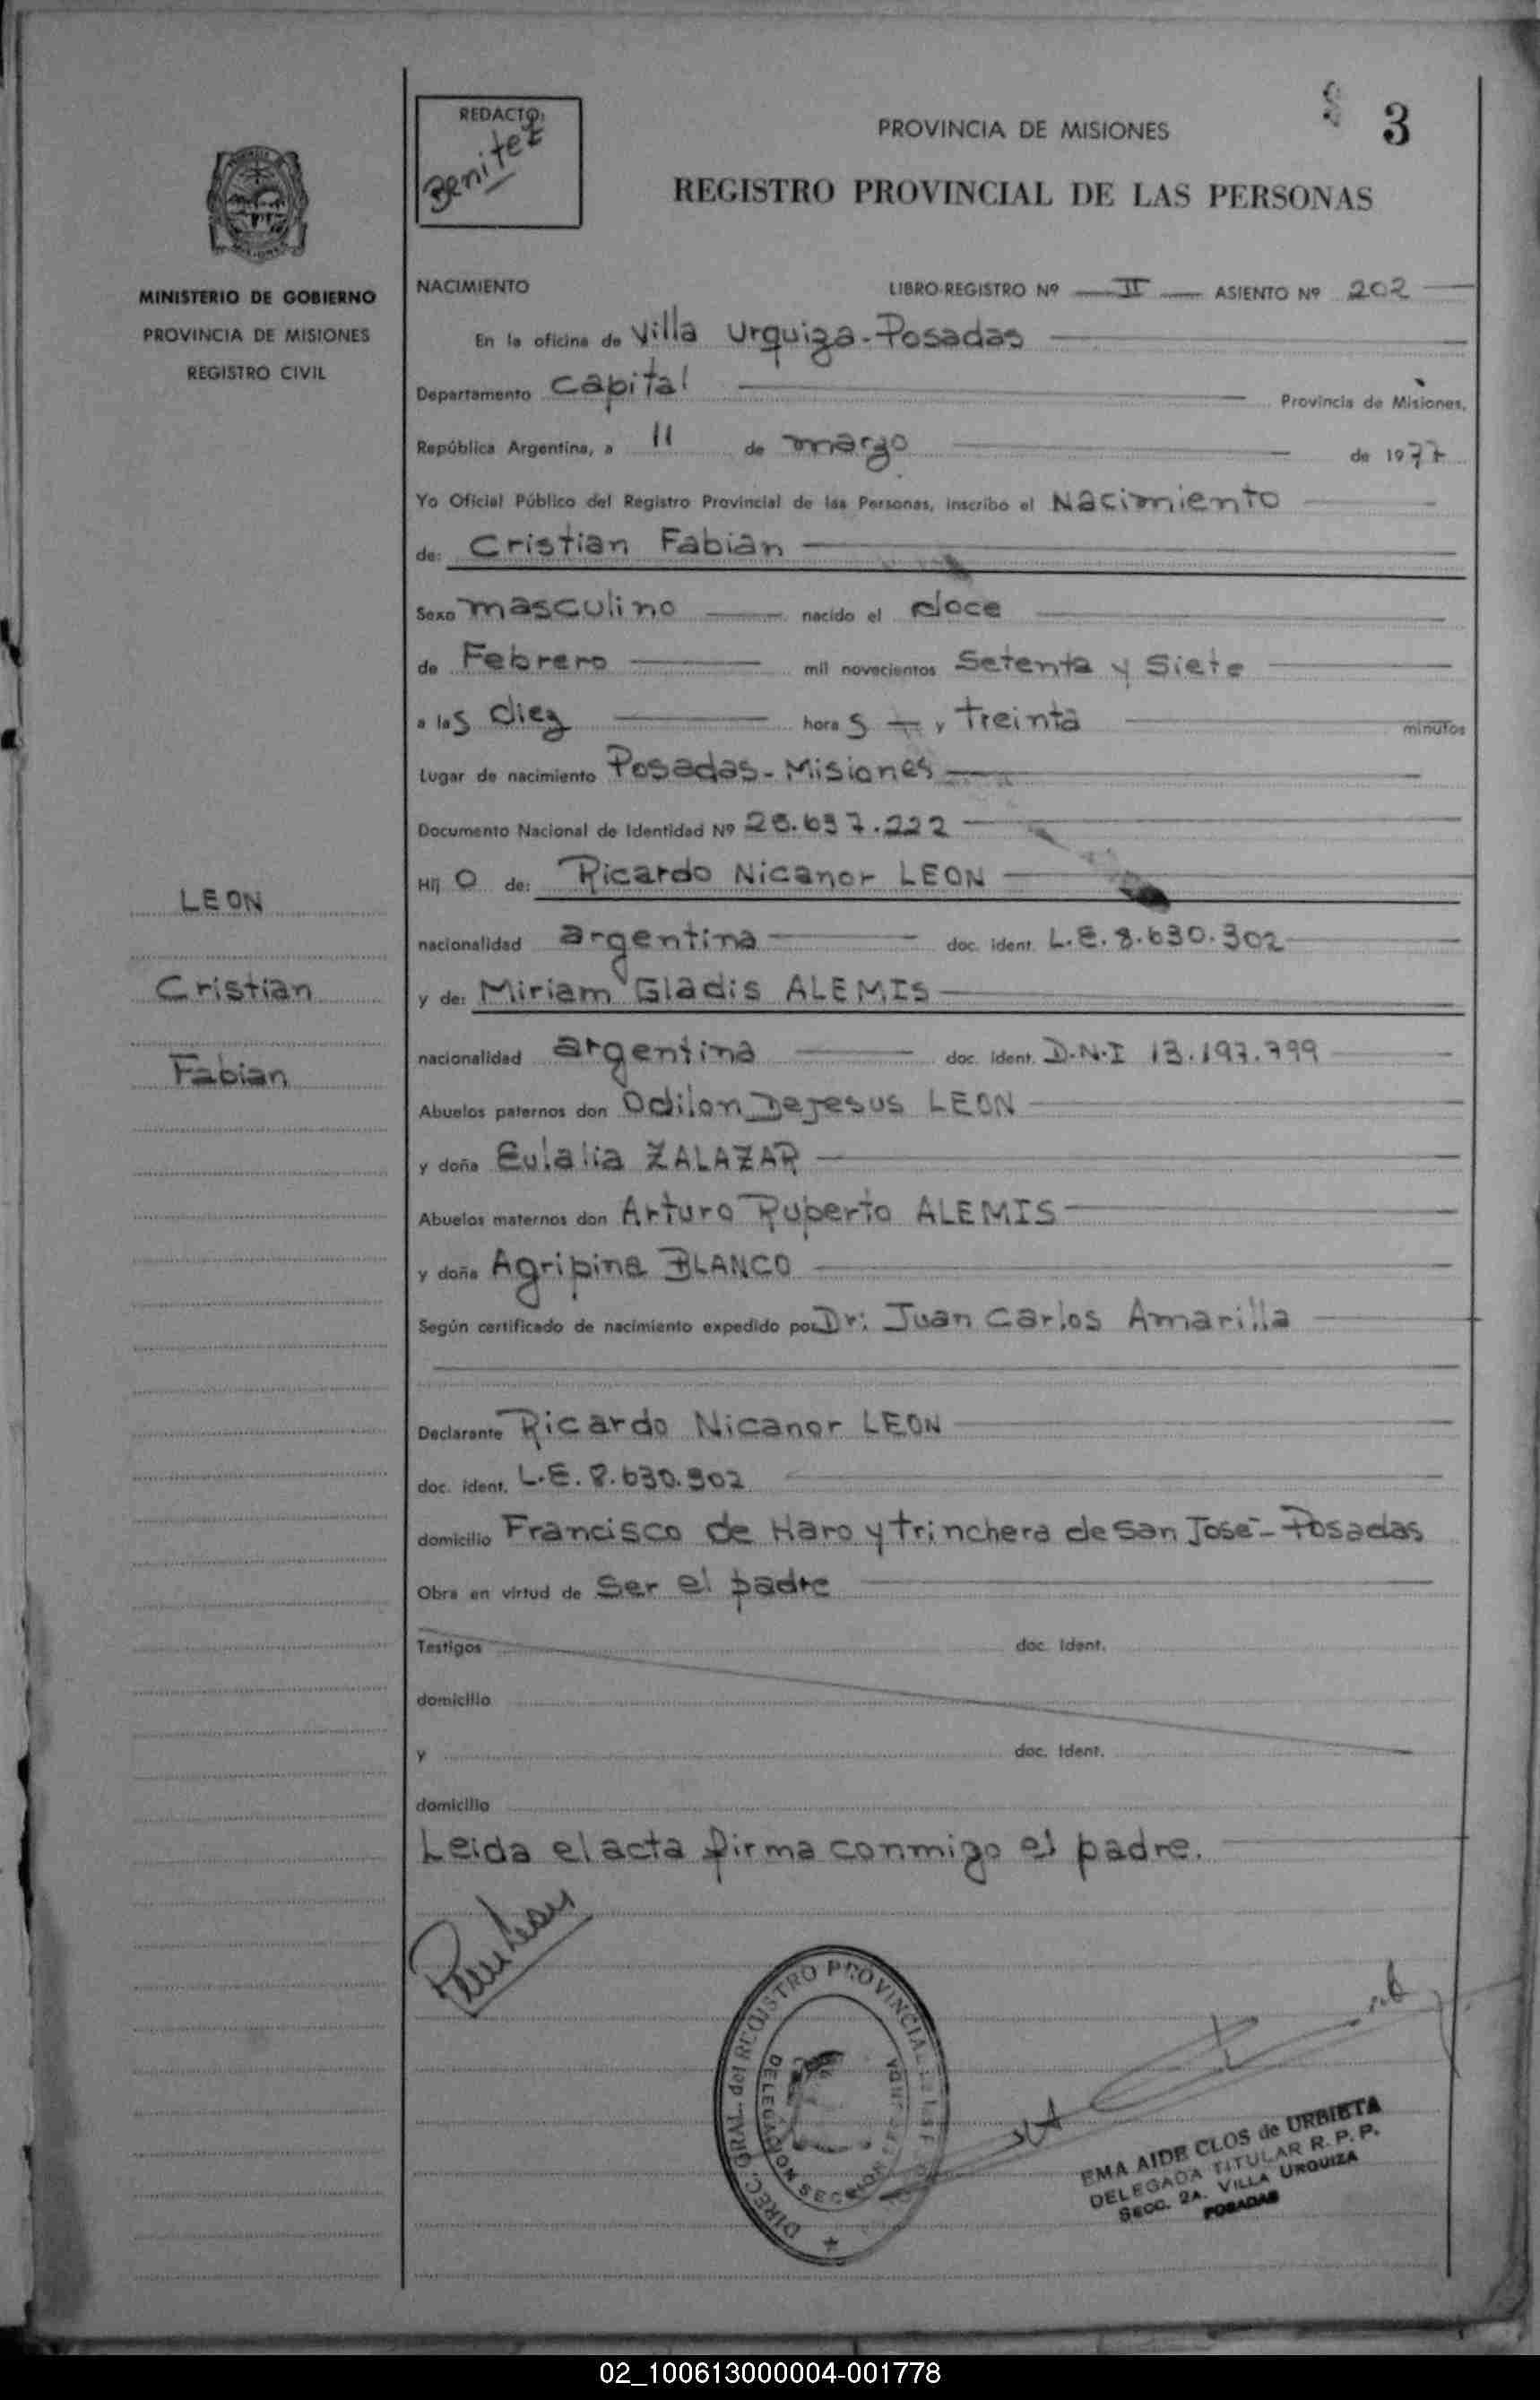 REDACTO:
Benitez
PROVINCIA DE MISIONES
3
REGISTRO PROVINCIAL DE LAS PERSONAS
MINISTERIO DE GOBIERNO
PROVINCIA DE MISIONES
REGISTRO CIVIL
NACIMIENTO LIBRO-REGISTRO Nº II ASIENTO Nº 202
En la oficina de Villa Urquiza-Posadas
Departamento Capital Provincia de Misiones,
República Argentina, a 11 de marzo de 1977
Yo Oficial Público del Registro Provincial de las Personas, inscribo el Nacimiento
de: Cristian Fabian
Sexo masculino nacido el doce
de Febrero mil novecientos Setenta y Siete
a las diez horas y treinta minutos
Lugar de nacimiento Posadas-Misiones
Documento Nacional de Identidad Nº 25.697.222
Hijo de: Ricardo Nicanor LEON
nacionalidad argentina doc. ident. L.E. 8.630.302
y de: Miriam Gladis ALEMIS
nacionalidad argentina doc. ident. D.N.I 13.197.799
Abuelos paternos don Odilon Dejesus LEON
y doña Eulalia ZALAZAR
Abuelos maternos don Arturo Ruperto ALEMIS
y doña Agripina BLANCO
Según certificado de nacimiento expedido por Dr: Juan Carlos Amarilla
Declarante Ricardo Nicanor LEON
doc. ident. L.E. 8.630.302
domicilio Francisco de Haro y trinchera de San José-Posadas
Obra en virtud de Ser el padre
Testigos doc. Ident.
domicilio
y doc. Ident.
domicilio
Leida el acta firma conmigo el padre.
LEON
Cristian
Fabian
DIREC. GRAL. del REGISTRO PROVINCIAL
DELEGACION SECCION
EMA AIDE CLOS de URBIETA
DELEGADA TITULAR R. P. P.
SECC. 2A. VILLA URQUIZA
POSADAS
02_100613000004-001778